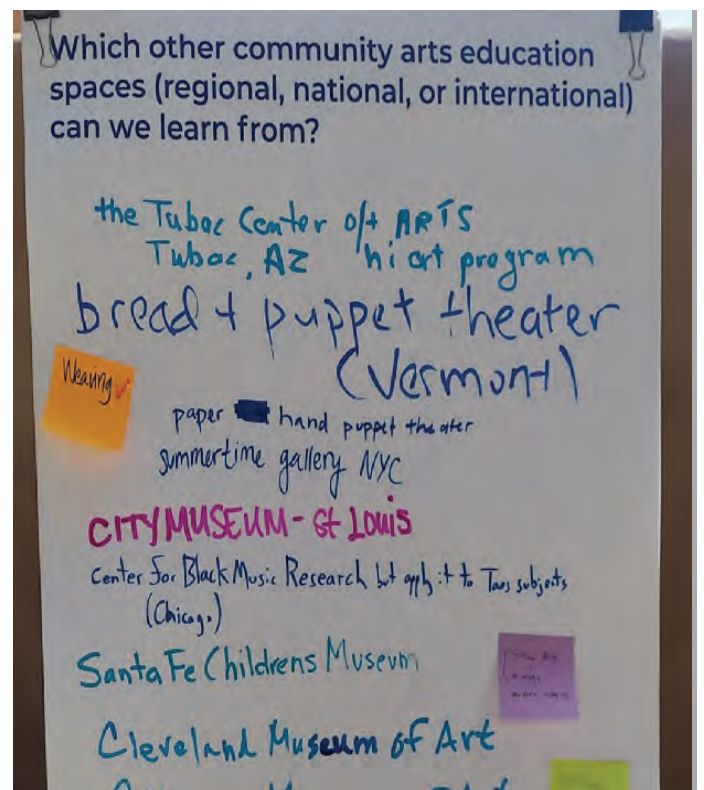 Which other community arts education
spaces (regional, national, or international)
can we learn from?
the Tubac Center of ARTS
Tubac, AZ hi art program
bread + puppet theater
(Vermont)
Weaving
paper hand puppet theater
summertime gallery NYC
CITY MUSEUM - St Louis
Center for Black Music Research but apply it to Taos subjects
(Chicago)
Santa Fe Childrens Museum
Cleveland Museum of Art